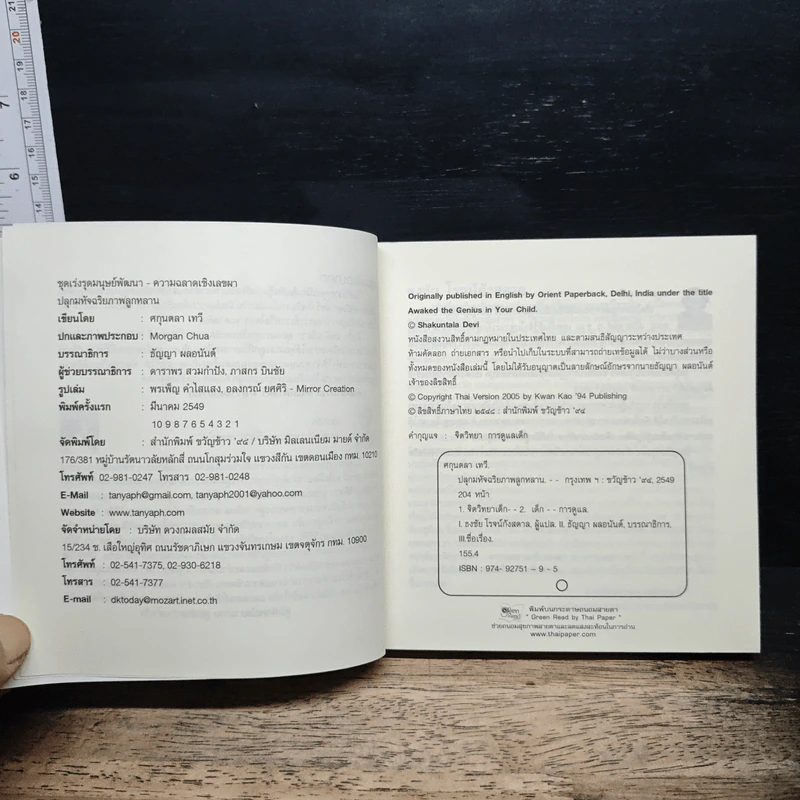 21
20
19
18
17
16
15
14
7
6
ชุดเร่งรุดมนุษย์พัฒนา - ความฉลาดเชิงเลขผา
ปลุกมหัจฉริยภาพลูกหลาน
เขียนโดย : ศกุนตลา เทวี
ปกและภาพประกอบ : Morgan Chua
บรรณาธิการ : ธัญญา ผลอนันต์
ผู้ช่วยบรรณาธิการ : ดาราพร สวมกำปัง, ภาสกร บินชัย
รูปเล่ม : พรเพ็ญ คำไสแสง, อลงกรณ์ ยศศิริ - Mirror Creation
พิมพ์ครั้งแรก : มีนาคม 2549
10 9 8 7 6 5 4 3 2 1
จัดพิมพ์โดย : สำนักพิมพ์ ขวัญข้าว '๙๔ / บริษัท มิลเลนเนียม มายด์ จำกัด
176/381 หมู่บ้านรัตนาวลัยหลักสี่ ถนนโกสุมร่วมใจ แขวงสีกัน เขตดอนเมือง กทม. 10210
โทรศัพท์ 02-981-0247 โทรสาร 02-981-0248
E-Mail : tanyaph@gmail.com, tanyaph2001@yahoo.com
Website : www.tanyaph.com
จัดจำหน่ายโดย : บริษัท ดวงกมลสมัย จำกัด
15/234 ซ. เสือใหญ่อุทิศ ถนนรัชดาภิเษก แขวงจันทรเกษม เขตจตุจักร กทม. 10900
โทรศัพท์ : 02-541-7375, 02-930-6218
โทรสาร : 02-541-7377
E-mail : dktoday@mozart.inet.co.th
Originally published in English by Orient Paperback, Delhi, India under the title
Awaked the Genius in Your Child.
© Shakuntala Devi
หนังสือสงวนสิทธิ์ตามกฎหมายในประเทศไทย และตามสนธิสัญญาระหว่างประเทศ
ห้ามคัดลอก ถ่ายเอกสาร หรือนำไปเก็บในระบบที่สามารถถ่ายเทข้อมูลได้ ไม่ว่าบางส่วนหรือ
ทั้งหมดของหนังสือเล่มนี้ โดยไม่ได้รับอนุญาตเป็นลายลักษณ์อักษรจากนายธัญญา ผลอนันต์
เจ้าของลิขสิทธิ์
© Copyright Thai Version 2005 by Kwan Kao '94 Publishing
© ลิขสิทธิ์ภาษาไทย ๒๕๔๘ : สำนักพิมพ์ ขวัญข้าว '๙๔
คำกุญแจ : จิตวิทยา การดูแลเด็ก
ศกุนตลา เทวี.
ปลุกมหัจฉริยภาพลูกหลาน. - - กรุงเทพ ฯ : ขวัญข้าว '๙๔, 2549
204 หน้า
1. จิตวิทยาเด็ก- - 2. เด็ก - - การดูแล.
I. ธงชัย โรจน์กังสดาล, ผู้แปล. II. ธัญญา ผลอนันต์, บรรณาธิการ.
III.ชื่อเรื่อง.
155.4
ISBN : 974- 92751 – 9 - 5
พิมพ์บนกระดาษถนอมสายตา
" Green Read by Thai Paper "
ช่วยถนอมสุขภาพสายตาและลดแสงสะท้อนในการอ่าน
www.thaipaper.com